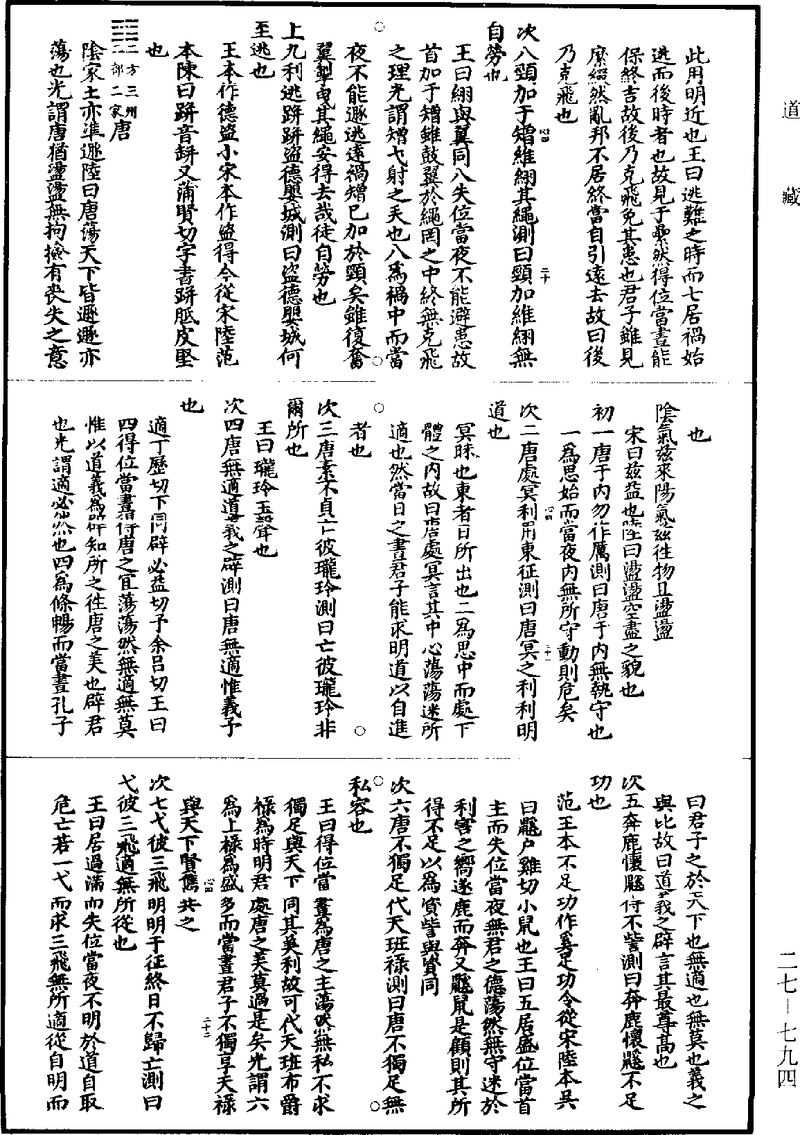 道藏
此用明近也王曰逃難之時而七居禍始
逃而後時者也故見于纍然得位當晝能
保終吉故後乃克飛免其患也君子雖見
縻縲然亂邦不居終當自引遠去故曰後
乃克飛也
次八頸加于矰維翂其繩測曰頸加維翂無
自勞也
王曰翂與翼同八失位當夜不能避患故
首加于矰雖鼓翼於繩罔之中終無克飛
之理光謂矰弋射之矢也八爲禍中而當
夜不能遯逃遠禍矰已加於頸矣雖復奮
翼掣曳其繩安得去哉徒自勞也
上九利逃跰跰盜德嬰城測曰盜德嬰城何
至逃也
王本作德盜小宋本作盜得今從宋陸范
本陳曰跰音缾又蒲賢切字書跰胝皮堅
也
二方三州
一部二家唐
陰家土亦準遯陸曰唐蕩天下皆遯遯亦
蕩也光謂唐猶盪盪無拘撿有喪失之意
也
陰氣兹來陽氣兹往物且盪盪
宋曰兹益也陸曰盪盪空盡之貌也
初一唐于内勿作厲測曰唐于内無執守也
一爲思始而當夜内無所守動則危矣
次二唐處冥利用東征測曰唐冥之利利明
道也
冥昧也東者日所出也二爲思中而處下
體之内故曰唐處冥言其中心蕩蕩迷所
適也然當日之晝君子能求明道以自進
者也
次三唐素不貞亡彼瓏玲測曰亡彼瓏玲非
爾所也
王曰瓏玲玉聲也
次四唐無適道義之辟測曰唐無適惟義予
也
適丁歷切下同辟必益切予余吕切王曰
四得位當晝得唐之宜蕩蕩然無適無莫
惟以道義爲辟知所之徃唐之美也辟君
也光謂適必然也四爲條暢而當晝孔子
曰君子之於天下也無適也無莫也義之
與比故曰道義之辟言其最尊高也
次五奔鹿懷鼷得不訾測曰奔鹿懷鼷不足
功也
范王本不足功作奚足功今從宋陸本吴
曰鼷户雞切小鼠也王曰五居盛位當首
主而失位當夜無君之德蕩然無守迷於
利害之嚮逐鹿而奔又鼷鼠是顧則其所
得不足以爲貲訾與貲同
次六唐不獨足代天班禄測曰唐不獨足無
私容也
王曰得位當晝爲唐之主蕩然無私不求
獨足與天下同其美利故可代天班布爵
禄爲時明君處唐之美莫過是矣光謂六
爲上禄爲盛多而當晝君子不獨享天禄
與天下賢儁共之
次七弋彼三飛明明于征終日不歸亡測曰
弋彼三飛適無所從也
王曰居過滿而失位當夜不明於道自取
危亡若一弋而求三飛無所適從自明而
二七—七九四